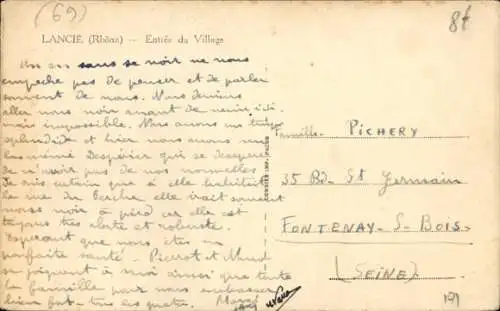 (69)
LANCIÉ (Rhône) — Entrée du Village
8t
sans se voir ne nous
empêche pas de penser et de parler
souvent de vous. Nous devions
aller vous voir avant de venir ici
mais impossible. Nous avons un temps
splendide et hier nous avons vu
même qui se
de n'avoir pas de vos nouvelles
Je suis certain que si elle habitait
la rue du elle irait souvent
vous voir à pied car elle est
toujours très alerte et robuste.
Espérant que vous êtes en
parfaite santé. Pierrot et
se joignent à moi ainsi que toute
la famille pour vous embrasser
bien fort tous les quatre.
Famille PICHERY
35 Bd St Germain
FONTENAY-S-BOIS
(SEINE)